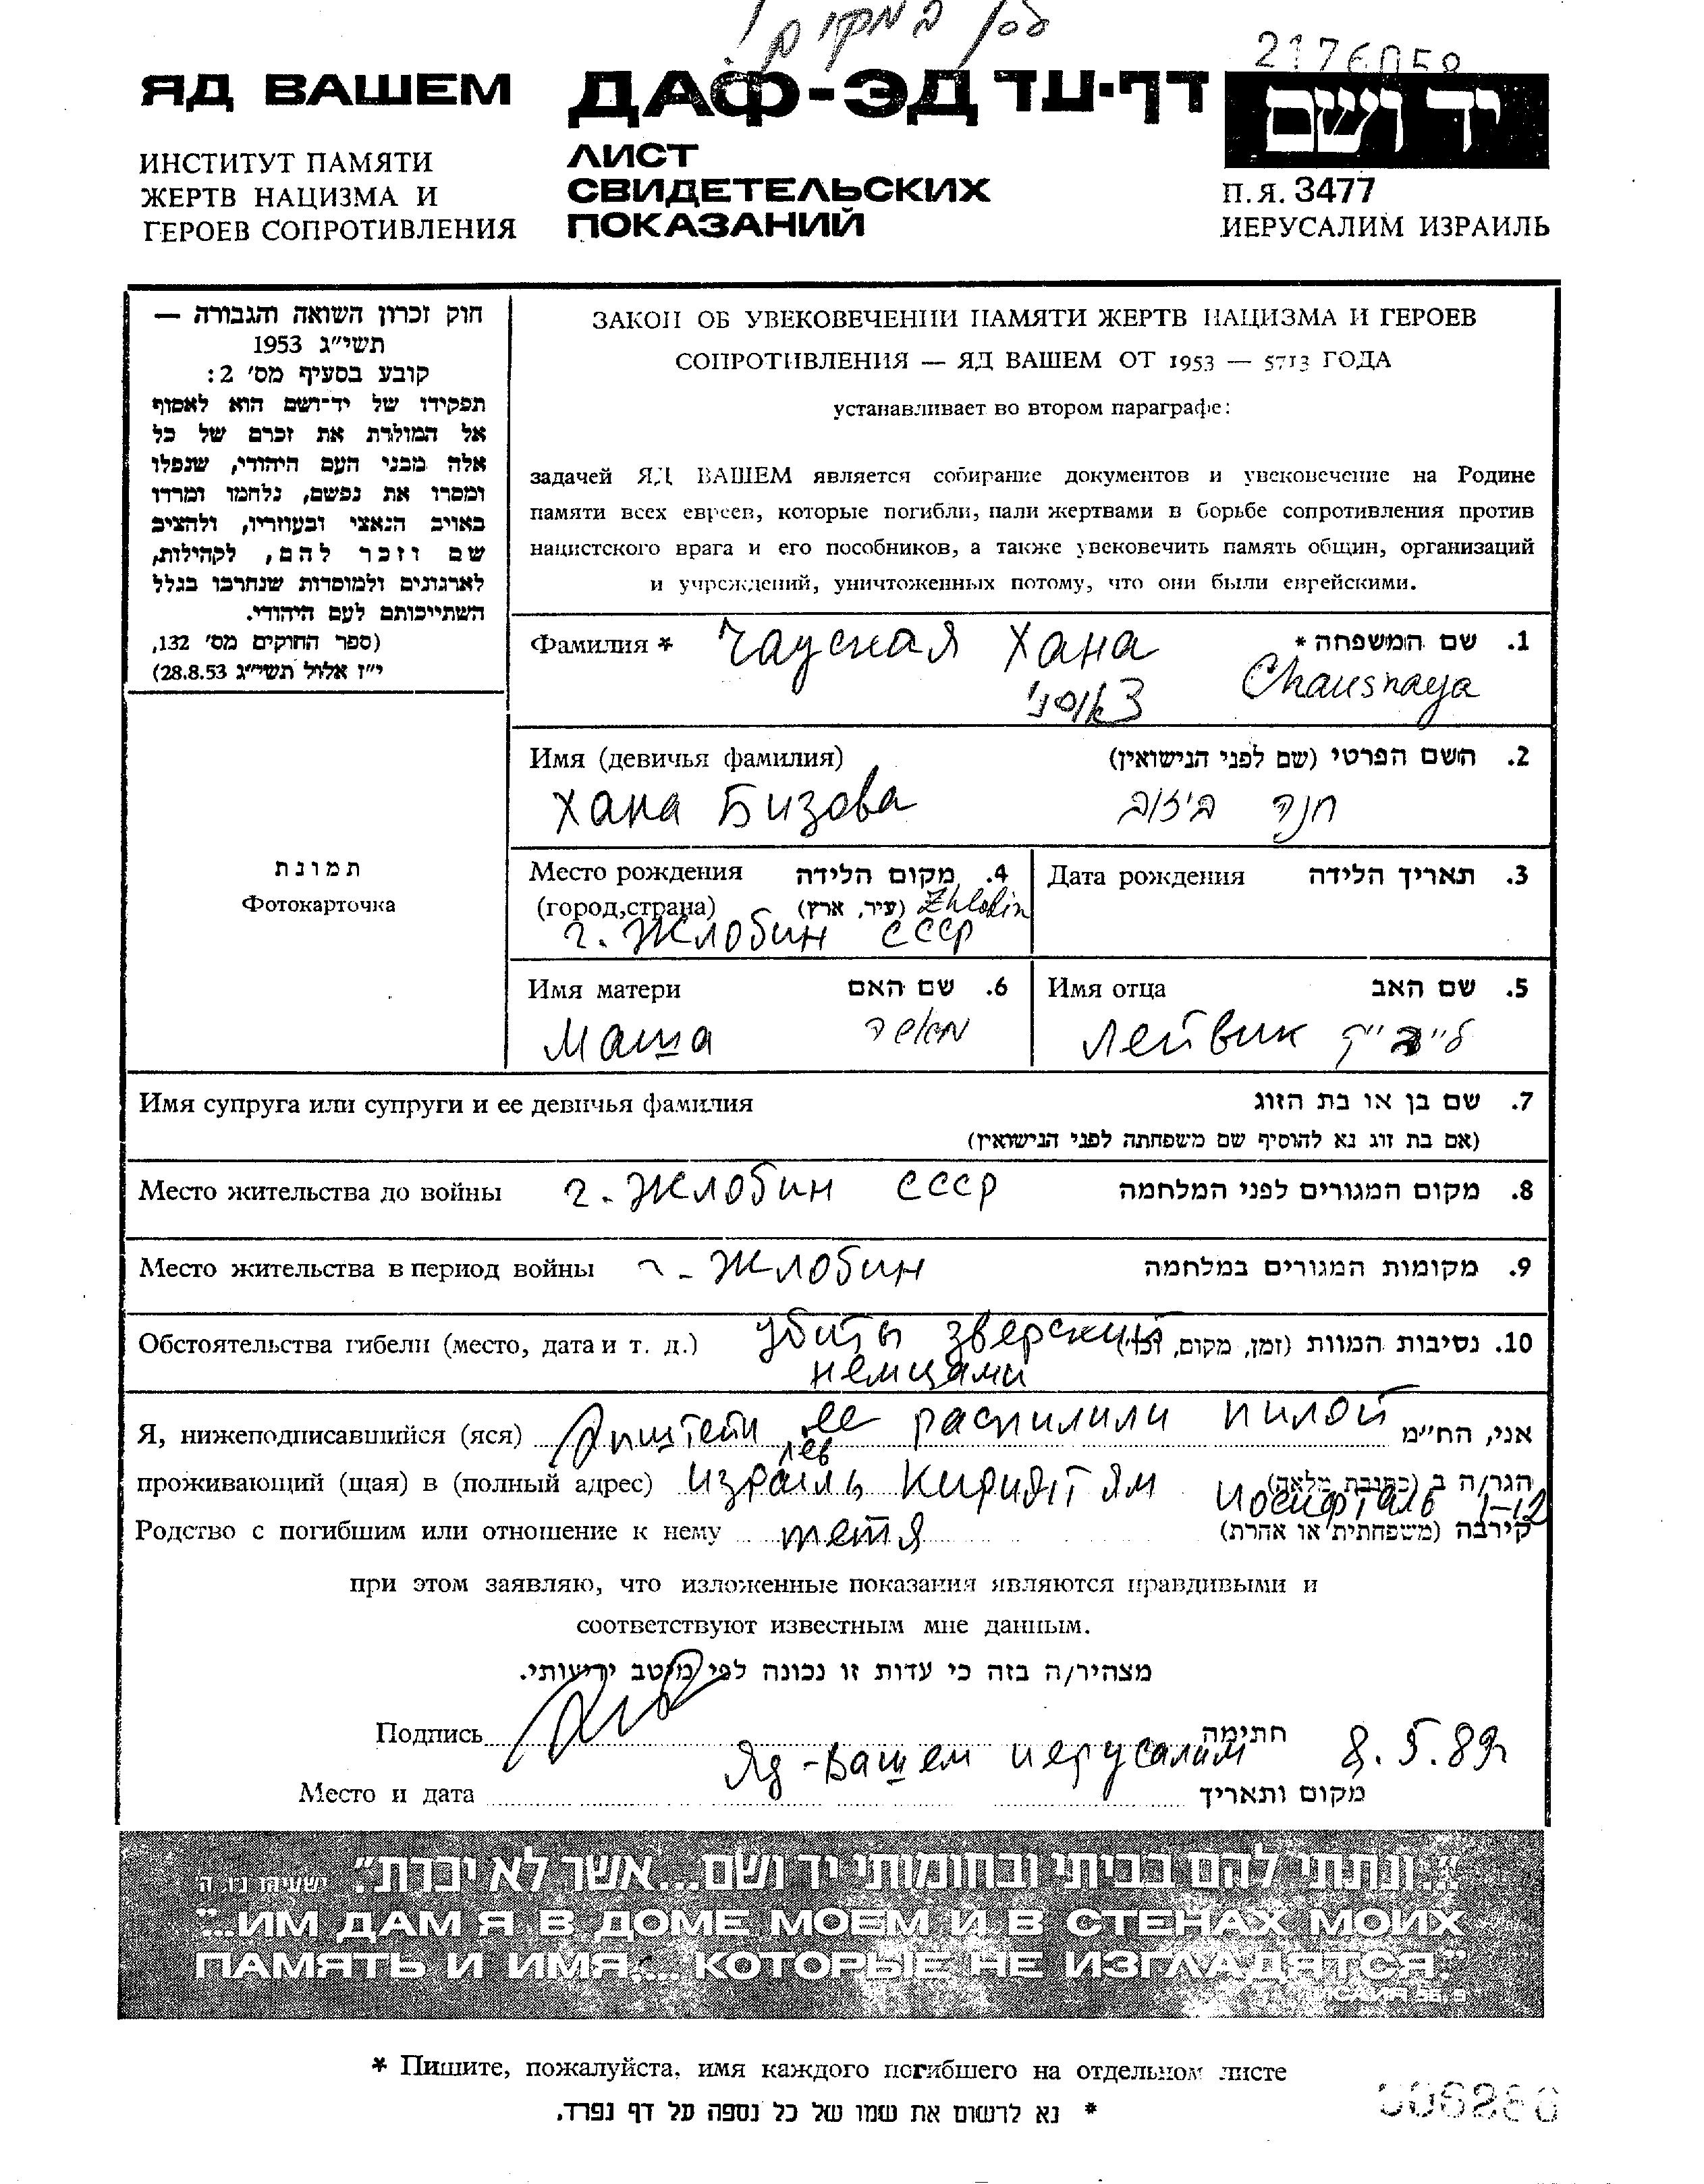 2176058
ЯД ВАШЕМ
ИНСТИТУТ ПАМЯТИ
ЖЕРТВ НАЦИЗМА И
ГЕРОЕВ СОПРОТИВЛЕНИЯ
ДАФ-ЭД דף-עד
ЛИСТ
СВИДЕТЕЛЬСКИХ
ПОКАЗАНИЙ
יד ושם
П.Я. 3477
ИЕРУСАЛИМ ИЗРАИЛЬ
חוק זכרון השואה והגבורה —
תשי"ג 1953
קובע בסעיף מס' 2:
תפקידו של יד-ושם הוא לאסוף
אל המולדת את זכרם של כל
אלה מבני העם היהודי, שנפלו
ומסרו את נפשם, נלחמו ומרדו
באויב הנאצי ובעוזריו, ולהציב
שם וזכר להם, לקהילות,
לארגונים ולמוסדות שנחרבו בגלל
השתייכותם לעם היהודי.
(ספר החוקים מס' 132,
י"ז אלול תשי"ג 28.8.53)
ЗАКОН ОБ УВЕКОВЕЧЕНИИ ПАМЯТИ ЖЕРТВ НАЦИЗМА И ГЕРОЕВ
СОПРОТИВЛЕНИЯ — ЯД ВАШЕМ ОТ 1953 — 5713 ГОДА
устанавливает во втором параграфе:
задачей ЯД ВАШЕМ является собирание документов и увековечение на Родине
памяти всех евреев, которые погибли, пали жертвами в борьбе сопротивления против
нацистского врага и его пособников, а также увековечить память общин, организаций
и учреждений, уничтоженных потому, что они были еврейскими.
Фамилия * Чауская Хана 1. שם המשפחה *
Chausnaya
תמונת
Фотокарточка
Имя (девичья фамилия) 2. השם הפרטי (שם לפני הנישואין)
Хана Бизова חנה ביזוב
Место рождения 4. מקום הלידה
(город,страна) (עיר, ארץ) Zhlobin
г. Жлобин СССР
Дата рождения 3. תאריך הלידה
Имя матери 6. שם האם
Маша מאשה
Имя отца 5. שם האב
Лейвик
Имя супруга или супруги и ее девичья фамилия 7. שם בן או בת הזוג
(אם בת זוג נא להוסיף שם משפחתה לפני הנישואין)
Место жительства до войны г. Жлобин СССР 8. מקום המגורים לפני המלחמה
Место жительства в период войны г. Жлобин 9. מקומות המגורים במלחמה
Обстоятельства гибели (место, дата и т. д.) убиты зверский 10. נסיבות המוות (זמן, מקום, וכו')
немцами
Я, нижеподписавшийся (яся) Эпштейн ее распилили пилой אני, הח"מ
лев
проживающий (щая) в (полный адрес) Израиль Кирият Ям Иосифталь 1-12 הגר/ה ב (כתובת מלאה)
Родство с погибшим или отношение к нему тетя קירבה (משפחתית או אחרת)
при этом заявляю, что изложенные показания являются правдивыми и
соответствуют известным мне данным.
מצהיר/ה בזה כי עדות זו נכונה לפי מיטב ידיעותי.
Подпись חתימה
Яд-Вашем иерусалим 8.5.89г
Место и дата מקום ותאריך
"...ונתתי להם בביתי ובחומותי יד ושם...אשר לא יכרת". ישעיהו נו, ה
"...ИМ ДАМ Я В ДОМЕ МОЕМ И В СТЕНАХ МОИХ
ПАМЯТЬ И ИМЯ,... КОТОРЫЕ НЕ ИЗГЛАДЯТСЯ."
ИСАИЯ 56, 5
* Пишите, пожалуйста, имя каждого погибшего на отдельном листе
* נא לרשום את שמו של כל נספה על דף נפרד.